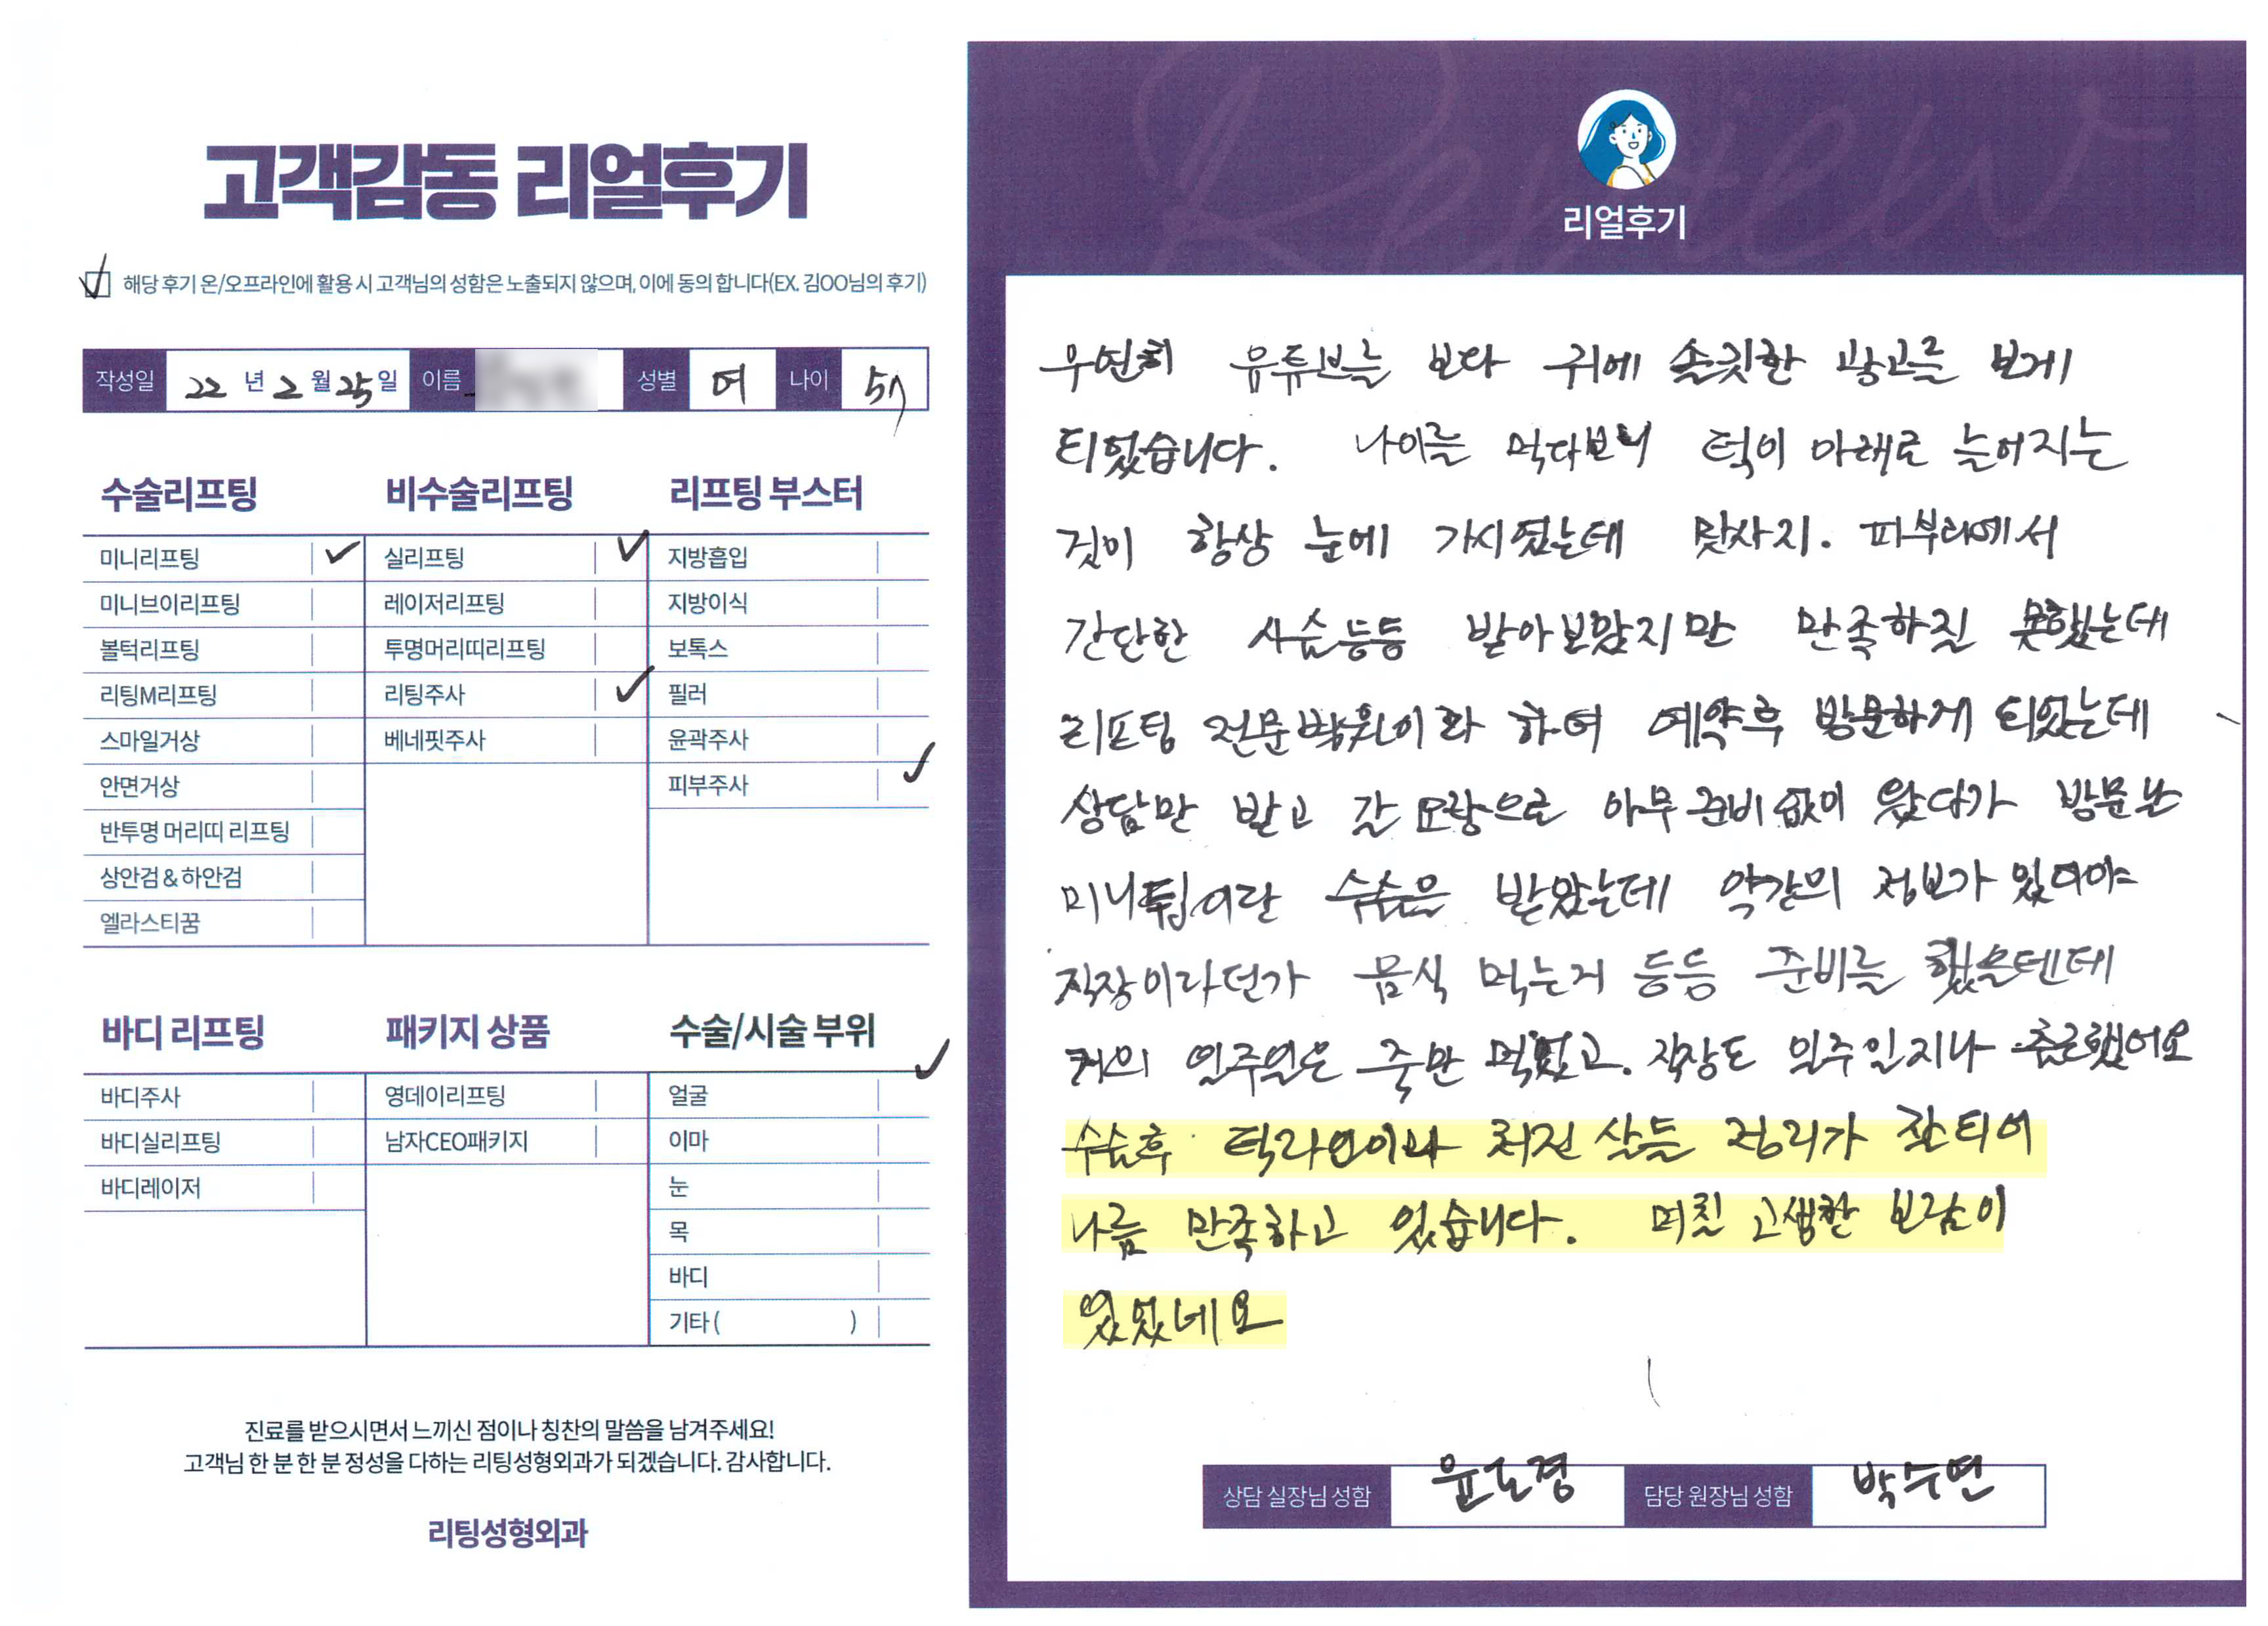 고객감동 리얼후기
해당 후기 온/오프라인에 활용 시 고객님의 성함은 노출되지 않으며, 이에 동의 합니다(EX. 김OO님의 후기)
작성일 22 년 2 월 25 일 이름 성별 여 나이 57
수술리프팅
미니리프팅
미니브이리프팅
볼턱리프팅
리팅M리프팅
스마일거상
안면거상
반투명 머리띠 리프팅
상안검 & 하안검
엘라스티꿈
비수술리프팅
실리프팅
레이저리프팅
투명머리띠리프팅
리팅주사
베네핏주사
리프팅 부스터
지방흡입
지방이식
보톡스
필러
윤곽주사
피부주사
바디 리프팅
바디주사
바디실리프팅
바디레이저
패키지 상품
영데이리프팅
남자CEO패키지
수술/시술 부위
얼굴
이마
눈
목
바디
기타 ( )
진료를 받으시면서 느끼신 점이나 칭찬의 말씀을 남겨주세요!
고객님 한 분 한 분 정성을 다하는 리팅성형외과가 되겠습니다. 감사합니다.
리팅성형외과
Review
리얼후기
우연히 유튜브를 보다 귀에 솔깃한 광고를 보게
되었습니다. 나이를 먹다보니 턱이 아래로 늘어지는
것이 항상 눈에 가시였는데 맛사지. 피부과에서
간단한 시술등등 받아보았지만 만족하질 못했는데
리프팅 전문병원이라 하여 예약후 방문하게 되었는데
상담만 받고 갈 요량으로 아무 준비 없이 왔다가 방문날
미니 이란 수술을 받았는데 약간의 정보가 있어야
직장이라던가 음식 먹는거 등등 준비를 했을텐데
거의 일주일은 죽만 먹었고. 직장도 일주일지나 출근했어요
수술후 턱라인이나 처진 살들 정리가 잘 되어
나름 만족하고 있습니다. 며칠 고생한 보람이
있었네요
상담 실장님 성함 윤도경 담당 원장님 성함 박수연